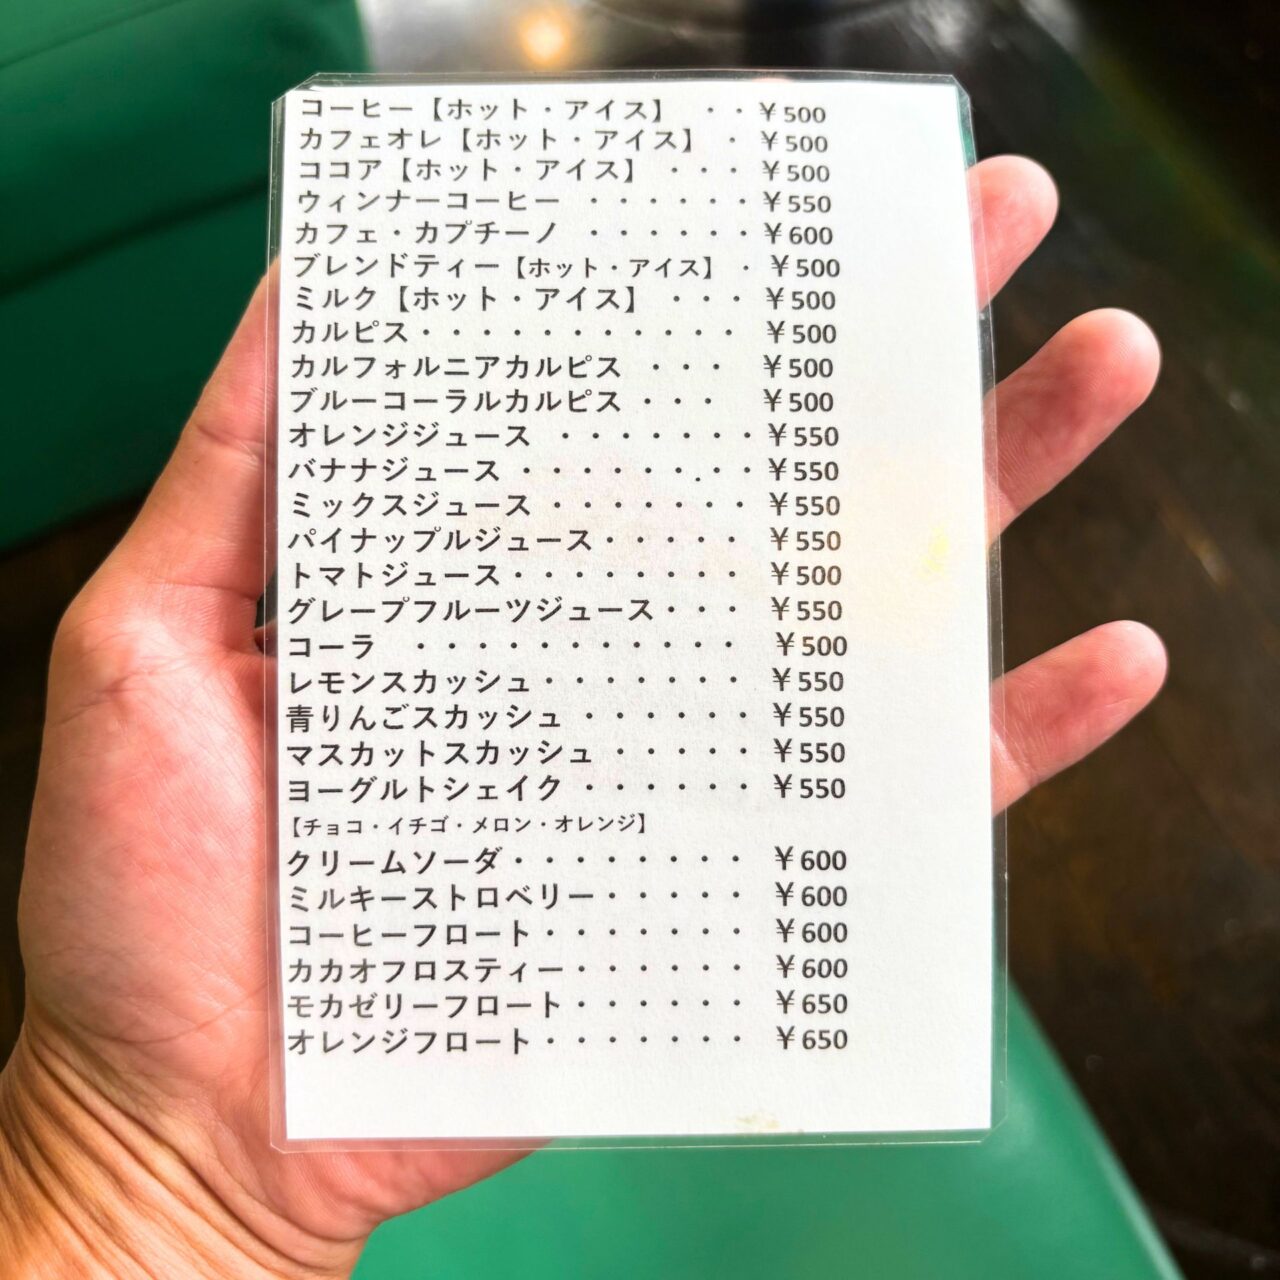 コーヒー【ホット・アイス】 ・・￥500
カフェオレ【ホット・アイス】 ・￥500
ココア【ホット・アイス】 ・・・￥500
ウィンナーコーヒー ・・・・・・￥550
カフェ・カプチーノ ・・・・・・￥600
ブレンドティー【ホット・アイス】 ・￥500
ミルク【ホット・アイス】 ・・・￥500
カルピス・・・・・・・・・・・ ￥500
カルフォルニアカルピス ・・・ ￥500
ブルーコーラルカルピス ・・・ ￥500
オレンジジュース ・・・・・・・￥550
バナナジュース ・・・・・・.・￥550
ミックスジュース ・・・・・・・ ￥550
パイナップルジュース・・・・・ ￥550
トマトジュース・・・・・・・・ ￥500
グレープフルーツジュース・・・ ￥550
コーラ ・・・・・・・・・・・ ￥500
レモンスカッシュ・・・・・・・ ￥550
青りんごスカッシュ ・・・・・・￥550
マスカットスカッシュ ・・・・・￥550
ヨーグルトシェイク ・・・・・・￥550
【チョコ・イチゴ・メロン・オレンジ】
クリームソーダ・・・・・・・・ ￥600
ミルキーストロベリー・・・・・ ￥600
コーヒーフロート・・・・・・・ ￥600
カカオフロスティー・・・・・・ ￥600
モカゼリーフロート・・・・・・ ￥650
オレンジフロート・・・・・・・ ￥650